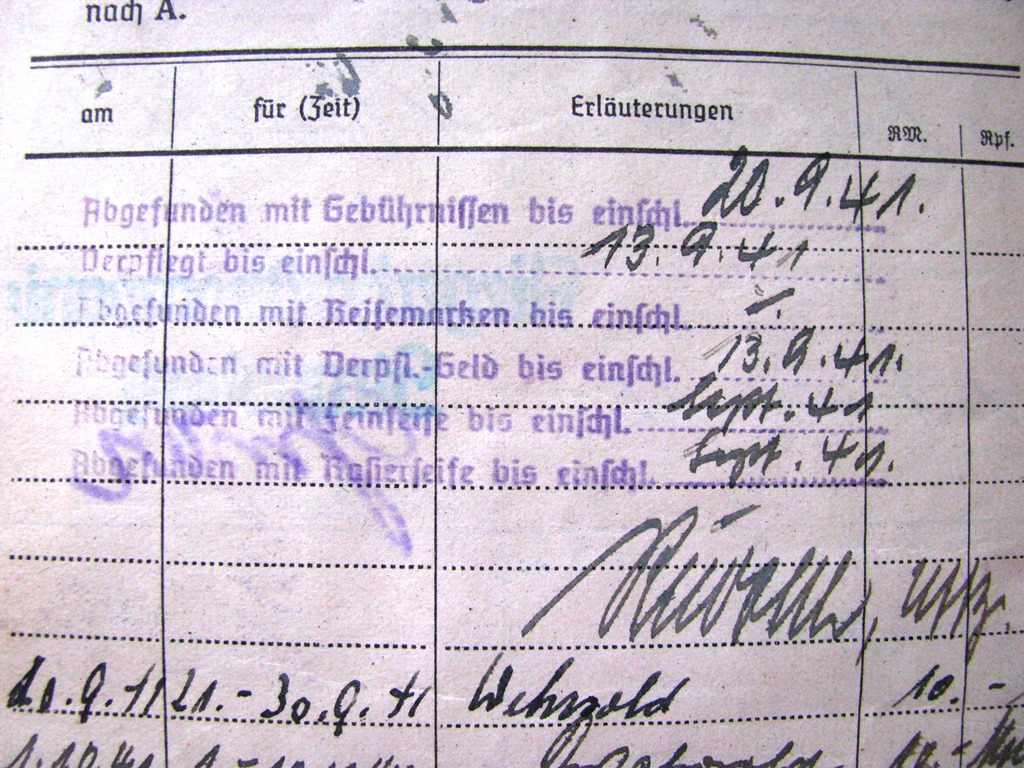 nach A.
am für (Zeit) Erläuterungen RM. Rpf.
Abgefunden mit Gebührnissen bis einschl. 20.9.41.
Verpflegt bis einschl. 13.9.41
Abgefunden mit Reisemarken bis einschl. -/.
Abgefunden mit Verpfl.-Geld bis einschl. 13.9.41.
Abgefunden mit Feinseife bis einschl. Sept. 41
Abgefunden mit Rasierseife bis einschl. Sept. 41.
Uffz.
20.9.41 21.-30.9.41 Wehrsold 10.-
1.10.41 Wehrsold 10.-